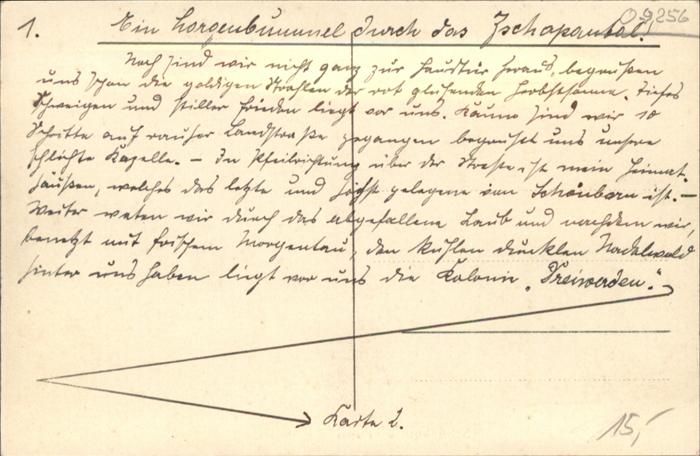 09256
1. Ein Morgenbummel durch das Zschopautal!
Noch sind wir nicht ganz zur Haustür heraus, begrüssen
uns schon die goldigen Strahlen der rot glühenden Herbstsonne. Tiefes
Schweigen und stiller Frieden liegt vor uns. Kaum sind wir 10
Schritte auf rauher Landstraße gegangen begrüsst uns unsere
schlichte Kapelle. – In Pfeilrichtung über der Strasse ist mein Heimat-
häuschen, welches das letzte und höchst gelegene von Schönborn ist. –
Weiter waten wir durch das abgefallene Laub und nachdem wir,
benetzt mit frischem Morgentau, den kühlen dunklen Nadelwald
hinter uns haben liegt vor uns die Kolonie „Dreiwerden."
Karte 2.
15,-